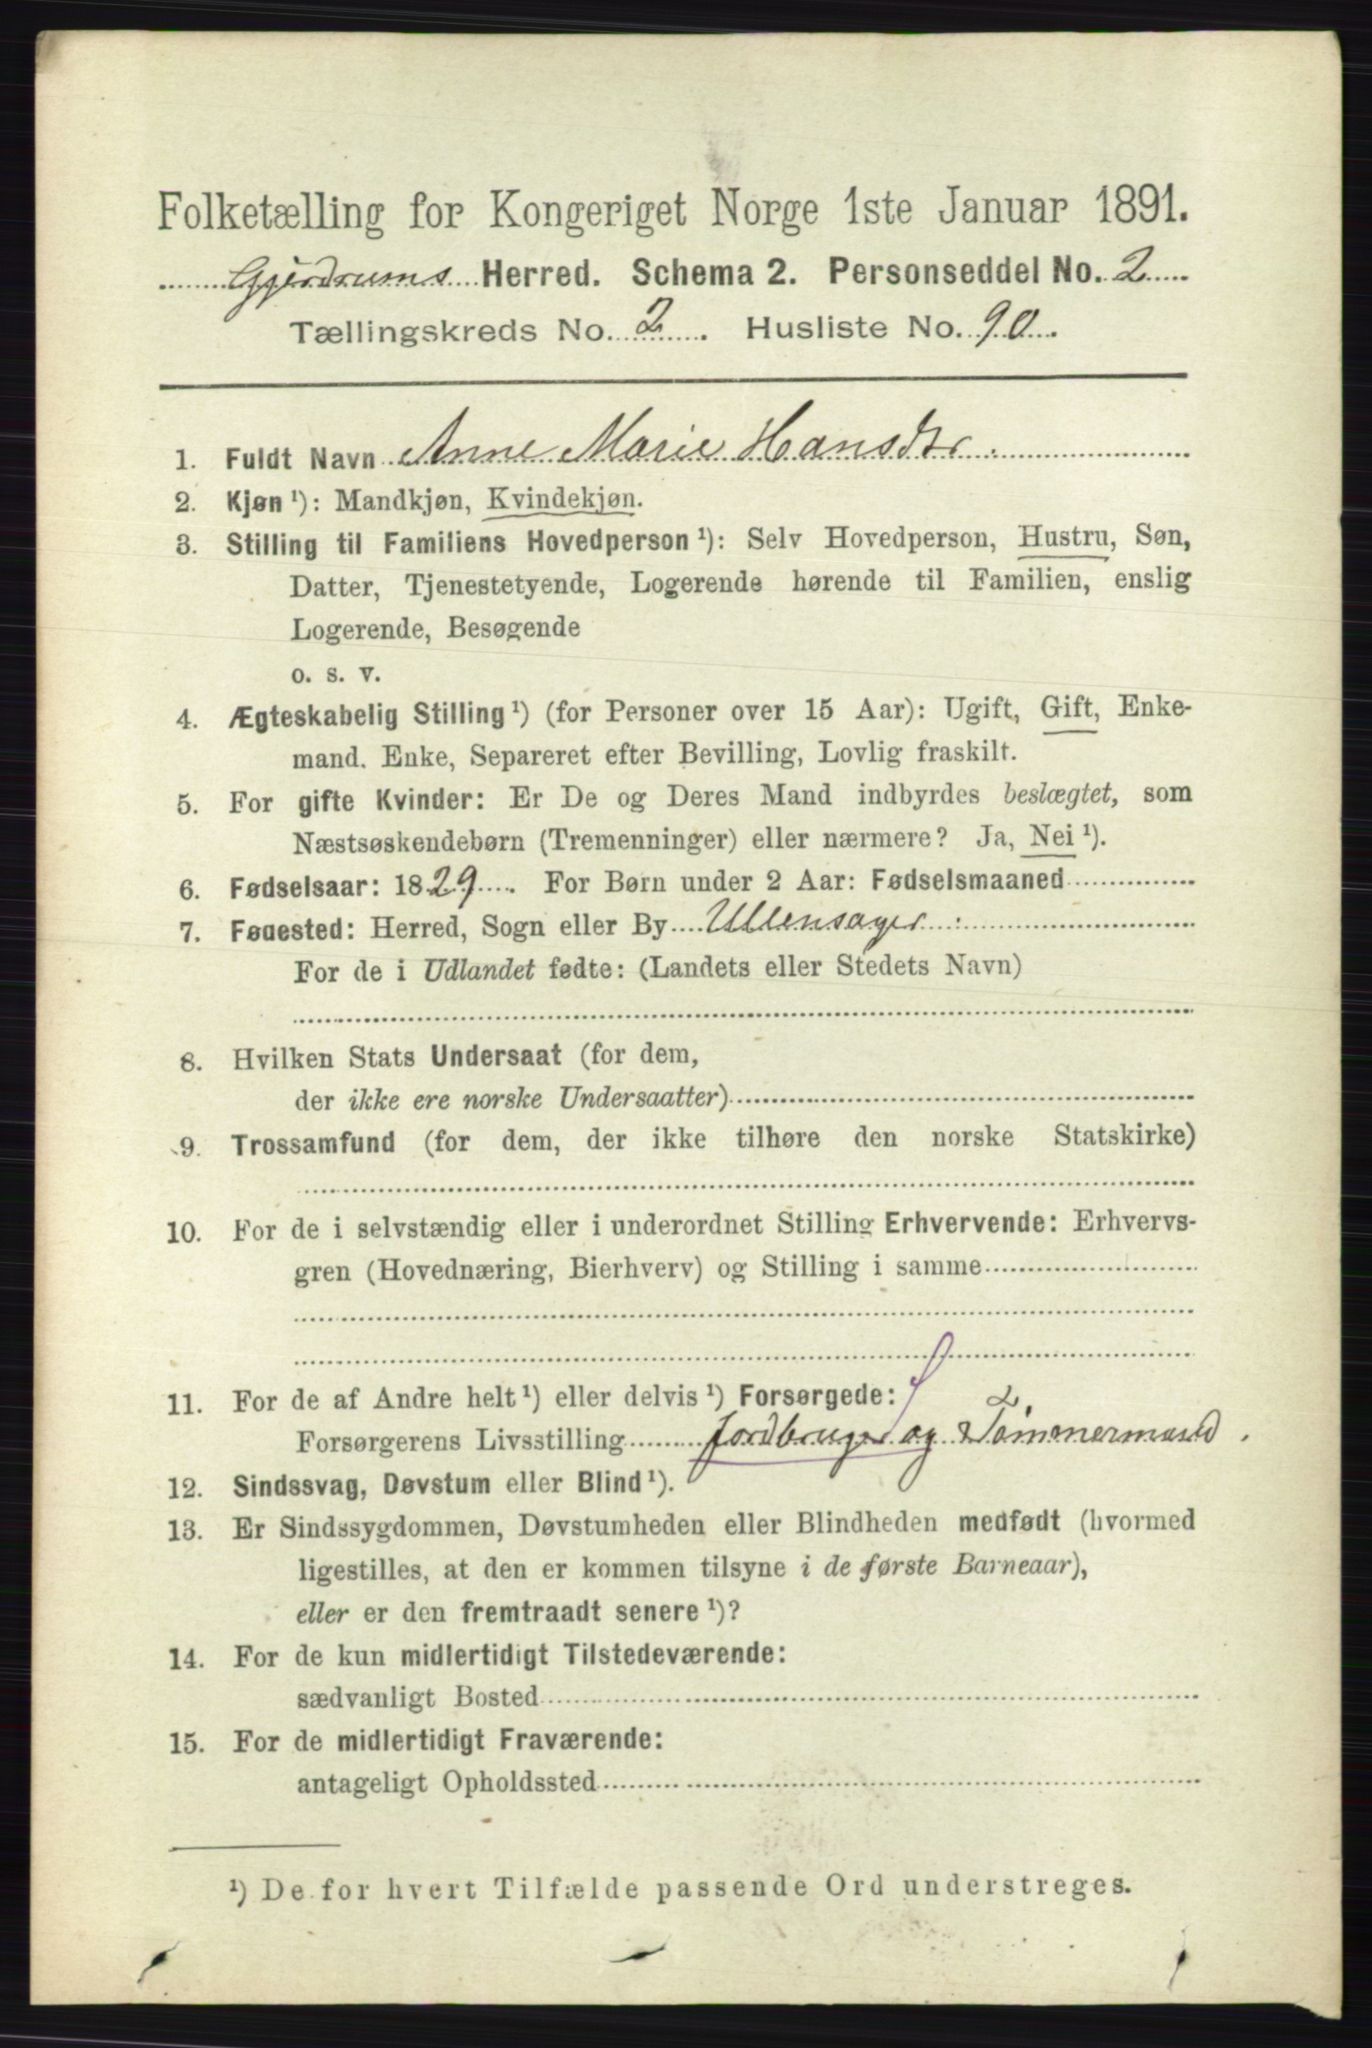 Folketælling for Kongeriget Norge 1ste Januar 1891.
Gjerdrums Herred. Schema 2. Personseddel No. 2
Tællingskreds No. 2. Husliste No. 90.
1. Fuldt Navn Anne Marie Hansdtr.
2. Kjøn ¹): Mandkjøn, Kvindekjøn.
3. Stilling til Familiens Hovedperson ¹): Selv Hovedperson, Hustru, Søn,
Datter, Tjenestetyende, Logerende hørende til Familien, enslig
Logerende, Besøgende
o. s. v.
4. Ægteskabelig Stilling ¹) (for Personer over 15 Aar): Ugift, Gift, Enke-
mand. Enke, Separeret efter Bevilling, Lovlig fraskilt.
5. For gifte Kvinder: Er De og Deres Mand indbyrdes beslægtet, som
Næstsøskendebørn (Tremenninger) eller nærmere? Ja, Nei ¹).
6. Fødselsaar: 1829. For Børn under 2 Aar: Fødselsmaaned
7. Fødested: Herred, Sogn eller By Ullensager
For de i Udlandet fødte: (Landets eller Stedets Navn)
8. Hvilken Stats Undersaat (for dem,
der ikke ere norske Undersaatter)
9. Trossamfund (for dem, der ikke tilhøre den norske Statskirke)
10. For de i selvstændig eller i underordnet Stilling Erhvervende: Erhvervs-
gren (Hovednæring, Bierhverv) og Stilling i samme
11. For de af Andre helt ¹) eller delvis ¹) Forsørgede:
Forsørgerens Livsstilling Jordbruger og Tømmermand.
12. Sindssvag, Døvstum eller Blind ¹).
13. Er Sindssygdommen, Døvstumheden eller Blindheden medfødt (hvormed
ligestilles, at den er kommen tilsyne i de første Barneaar),
eller er den fremtraadt senere ¹)?
14. For de kun midlertidigt Tilstedeværende:
sædvanligt Bosted
15. For de midlertidigt Fraværende:
antageligt Opholdssted
¹) De for hvert Tilfælde passende Ord understreges.